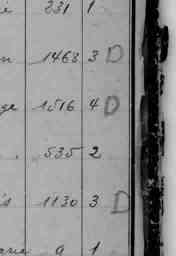 231 1
n 1468 3 D
ge 1516 4 D
535 2
s 1130 3 D
9 1